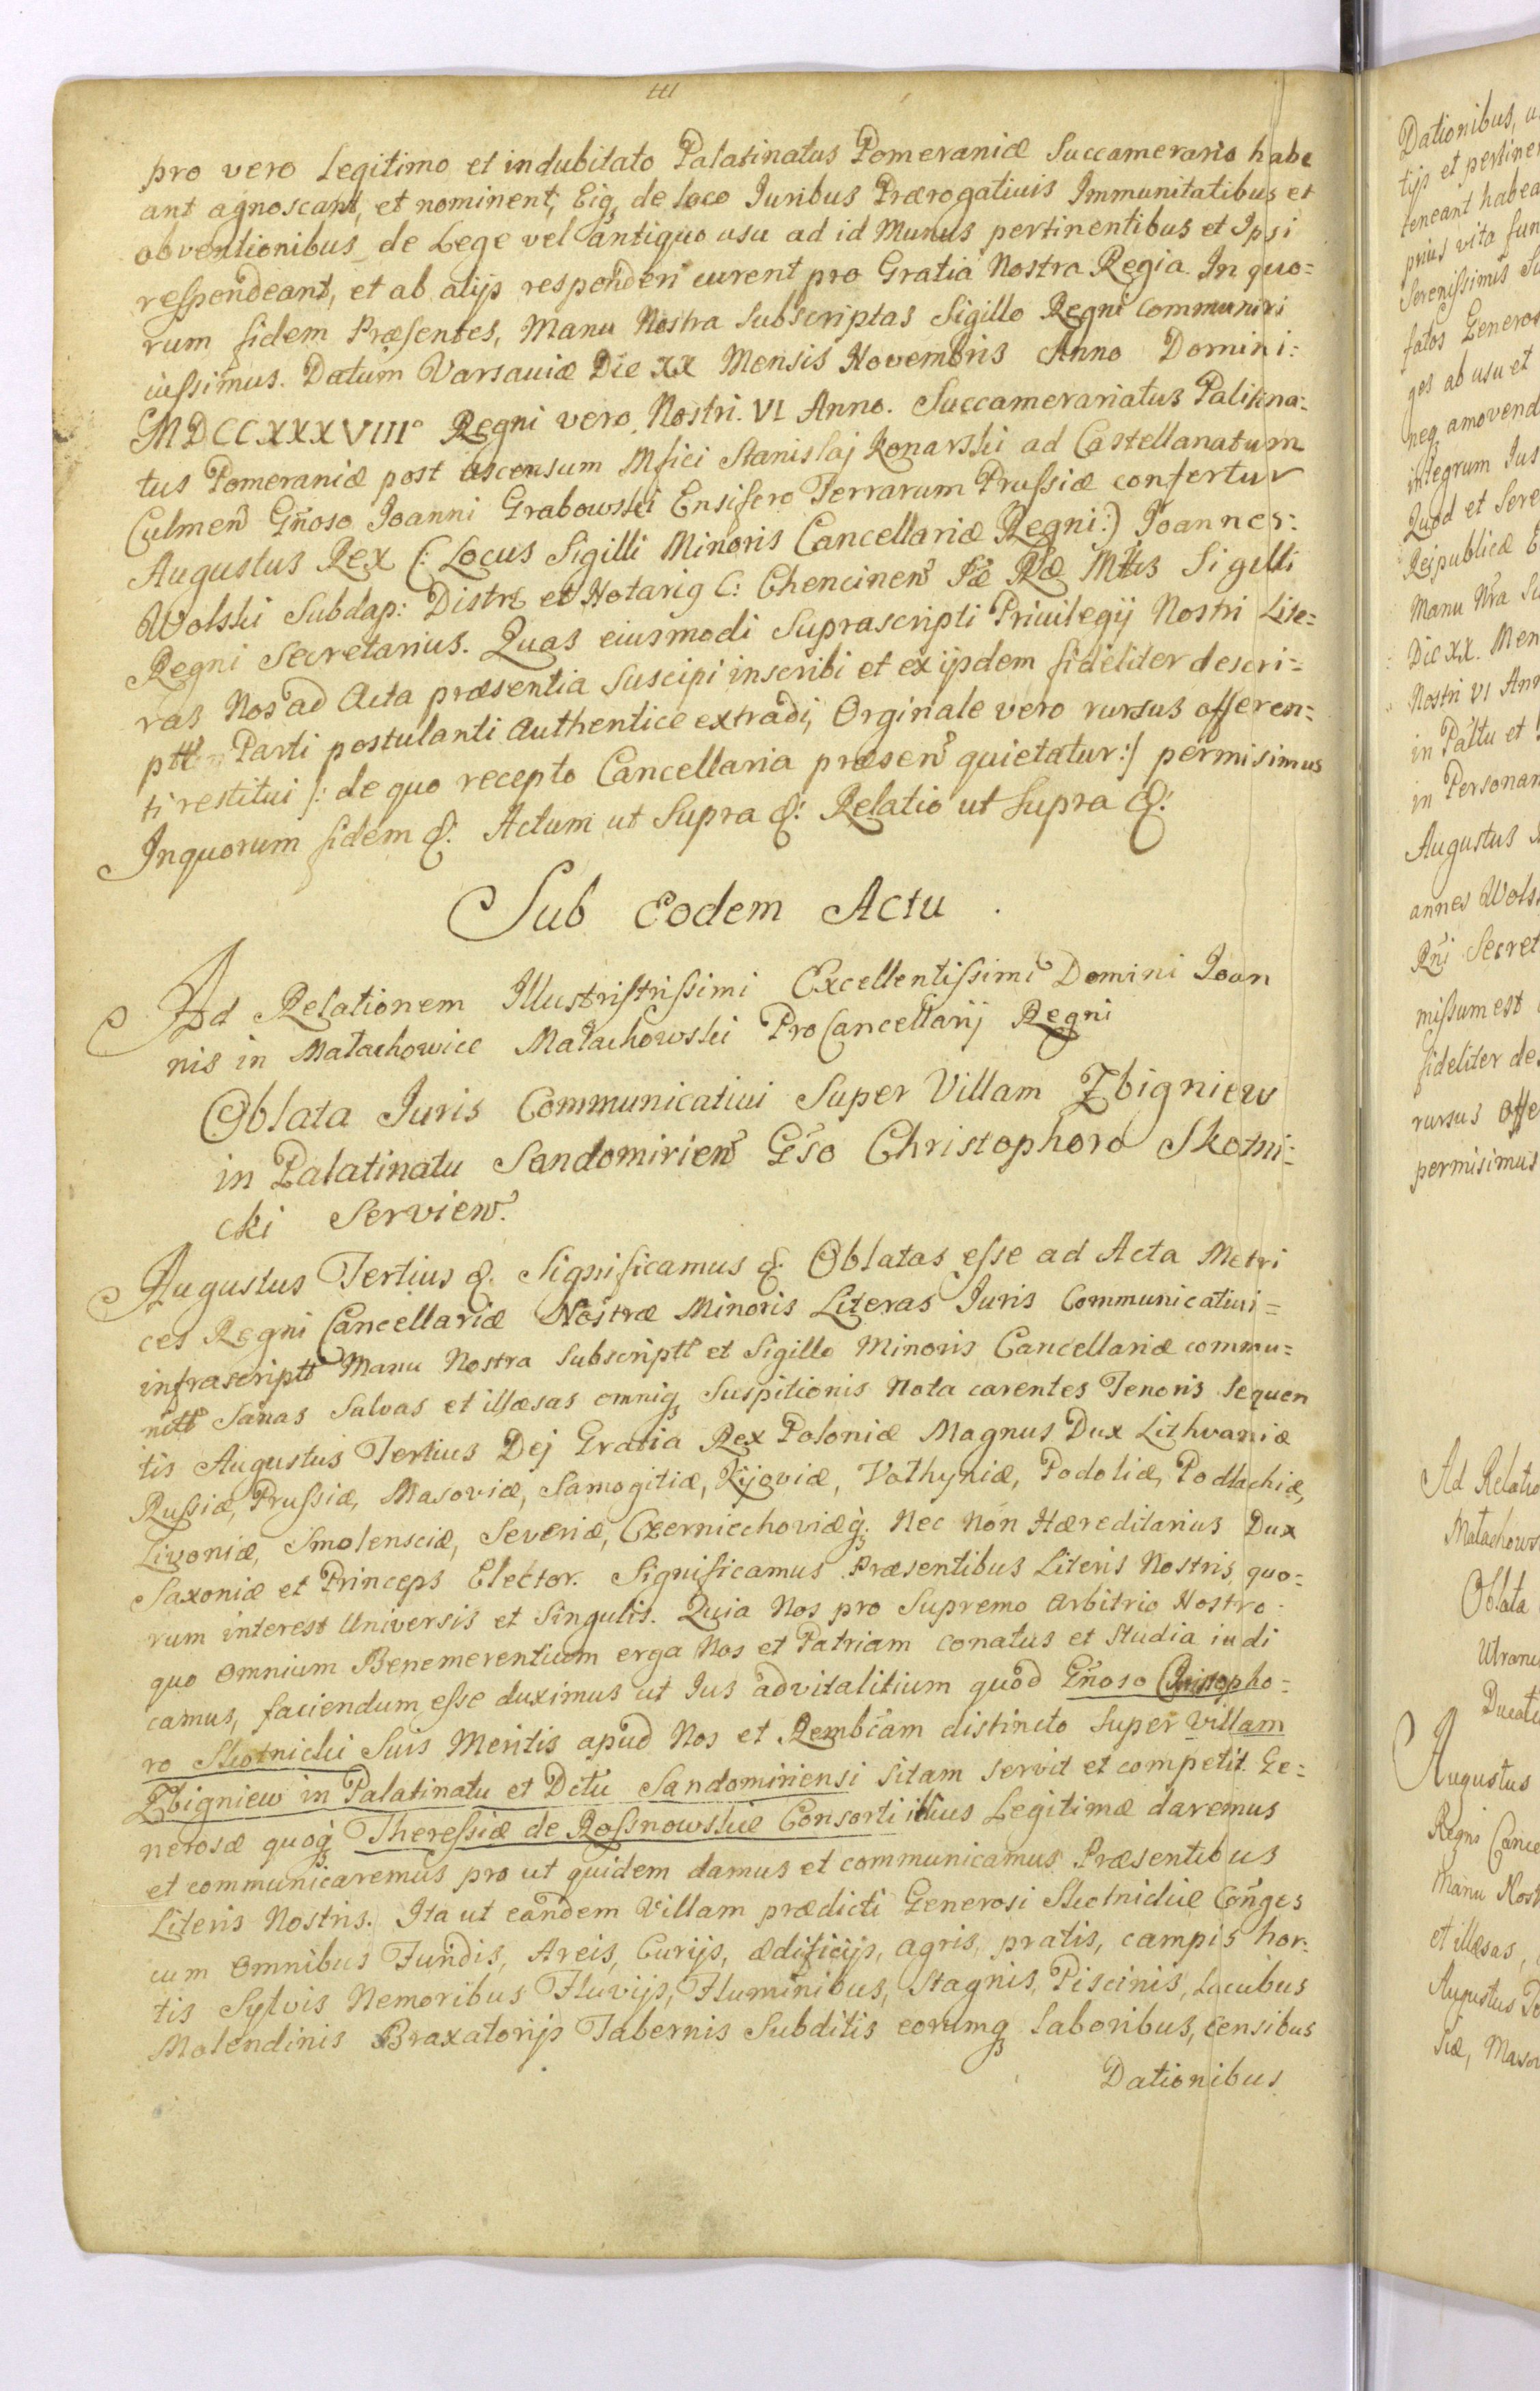 pro vero Legitimo et indubitato Palatinatus Pomeraniæ Succamerario habe
ant agnoscant, et nominent, Eiq, de loco Juribus Prærogativis Immunitatibus et
obventionibus de Lege vel antiquo usu ad id Munus pertinentibus et Ipsi
respondeant, et ab alijs responderi curent pro Gratia Nostra Regia. In quo=
rum fidem Præsentes, Manu Nostra Subscriptas Sigillo Regni communiri
iussimus. Datum Varsaviæ Die XX Mensis Novembris Anno Domini:
MDCCXXXVIII° Regni vero Nostri VI Anno. Succamerariatus Palatina:
tus Pomeraniæ post ascensum Mfici Stanislaj Konarski ad Castellanatum
Culmen Gnoso Joanni Grabowski Ensifero Terrarum Prussiæ confertur
Augustus Rex (: Locus Sigilli Minoris Cancellariæ Regni:) Joannes:
Wolski Subdap: Distr et Notariq C: Chencinen Sæ Ræ Mttis Sigilli
Regni Secretarius. Quas eiusmodi Suprascripti Privilegij Nostri Lite=
ras Nos ad Acta præsentia Suscipi inscribi et ex ijsdem fideliter descri=
ptt Parti postulanti Authentice extradi, Orginale vero rursus offeren=
ti restitui /: de quo recepto Cancellaria præsen quietatur:/ permisimus
Inquorum fidem &: Actum ut Supra &: Relatio ut Supra &:
Sub Eodem Actu.
Ad Relationem Illustristrissimi Excellentissimi Domini Joan
nis in Małachowice Małachowski ProCancellarij Regni
Oblata Juris Communicativi Super Villam Zbigniew
in Palatinatu Sandomirien Gso Christophoro Skotni=
cki Servien.
Augustus Tertius &. Significamus &. Oblatas esse ad Acta Metri
ces Regni Cancellariæ Nostræ Minoris Literas Juris Communicativi=
infrascriptt Manu Nostra Subscriptt et Sigillo Minoris Cancellariæ commu=
nitt Sanas Salvas et illæsas omniq Suspitionis Nota carentes Tenoris Sequen
tis Augustus Tertius Dej Gratia Rex Poloniæ Magnus Dux Lithvaniæ
Russiæ, Prussiæ, Masoviæ, Samogitiæ, Kijoviæ, Vołhyniæ, Podoliæ, Podlachiæ,
Livoniæ, Smolensciæ, Severiæ, Czerniechoviæq. Nec Non Hæreditarius Dux
Saxoniæ et Princeps Elector. Significamus Præsentibus Literis Nostris, quo=
rum interest Universis et Singulis. Quia Nos pro Supremo Arbitrio Nostro
quo omnium Benemerentium erga Nos et Patriam conatus et Studia iudi
camus, faciendum esse duximus ut Jus advitalitium quod Gnoso Christopho=
ro Skotnicki Suis Meritis apud Nos et Rembcam distincto Super Villam
Zbigniew in Palatinatu et Dctu Sandomiriensi Sitam servit et competit. Ge=
nerosæ quoq Theressiæ de Rossnowskie Consorti illius Legitimæ daremus
et communicaremus pro ut quidem damus et communicamus Præsentibus
Literis Nostris. Ita ut eandem Villam prædicti Generosi Skotnickie Conges
cum omnibus Fundis, Areis, Curijs, ædificijs, agris, pratis, campis hor:
tis Sylvis Nemoribus Fluvijs, Fluminibus, Stagnis, Piscinis, Lacubus
Molendinis Braxatorijs Tabernis Subditis eorumq laboribus, censibus
Dationibus
Dationibus,
tijs et
teneant
prius vita
Serenissimis
fatos
ges ab usu et
neq amovend
integrum Jus
Quod et Sere
Reipublicæ
Manu Nra
Die XX. Men
Nostri VI Ann
in Paltu et
in Personam
Augustus
annes Wols
Rni Secret
missum est
fideliter de
rursus offe
permisimus
Ad Relatio
Małachows
Oblata
Ducat
Augustus
Regni Cance
Manu Nost
et illæsas,
Augustus
siæ, Masov